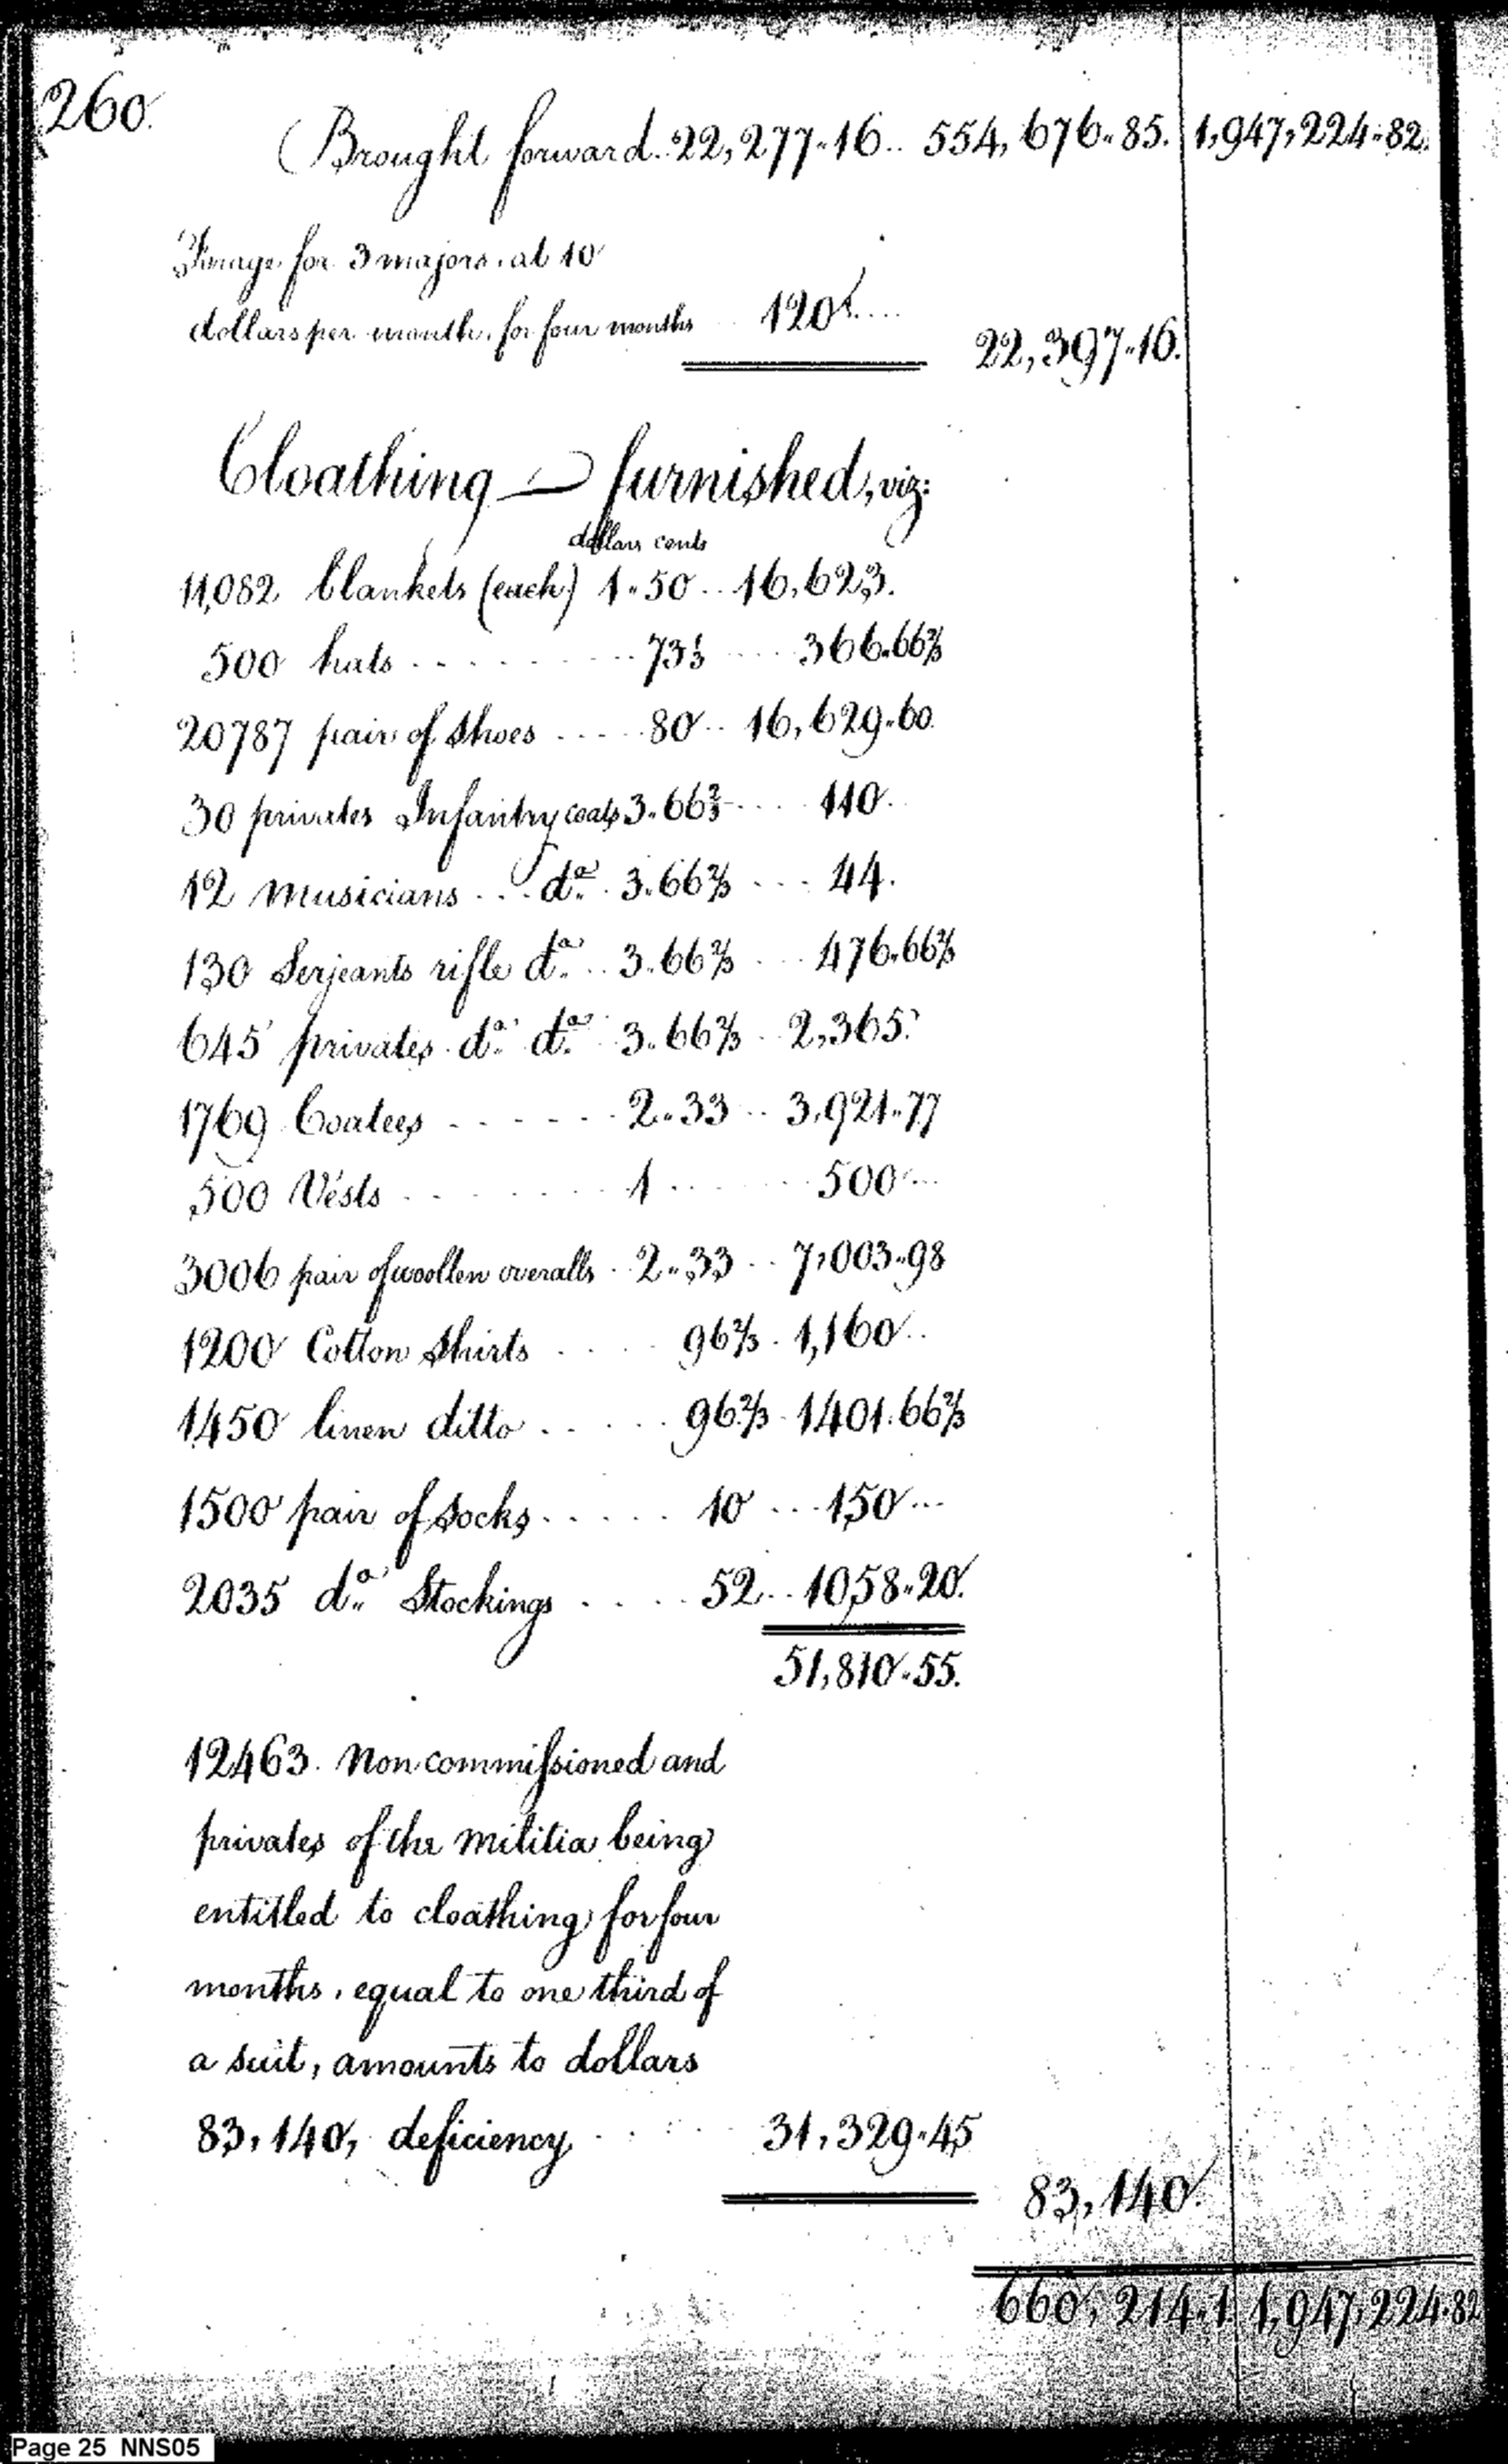 260.
(Brought forward.. 22,277.16.. 554,676.85. 1,947,224.82.
Forage for 3 majors at 10
dollars per month, for four months .. 120 ....
22,397.16.
Cloathing furnished, viz:
dollars cents
11,082 blankets (each) 1.50 .. 16,623.
500 hats . . . . . . . . 73⅓ ..... 366.66⅔
20787 pair of Shoes ..... 80 .. 16,629.60.
30 privates Infantry coats 3.66⅔ .... 110.
12 musicians ... do. 3.66⅔ .... 44.
130 Serjeants rifle do. .. 3.66⅔ .... 476.66⅔
645 privates do. do. 3.66⅔ .. 2,365.
1769 Coatees . . . . . . 2.33 .. 3,921.77
500 Vests . . . . . . . . 1 ..... 500 ...
3006 pair of woollen overalls .. 2.33 ... 7,003.98
1200 Cotton Shirts ..... 96⅔ . 1,160 ..
1450 linen ditto ..... 96⅔ . 1401.66⅔
1500 pair of socks ..... 10 ... 150 ...
2035 do. Stockings ..... 52 .. 1058.20.
51,810.55.
12463. Non commissioned and
privates of the militia being
entitled to cloathing for four
months, equal to one third of
a suit, amounts to dollars
83,140, deficiency ...... 31,329.45
83,140.
660,214.1. 1,947,224.82
Page 25 NNS05